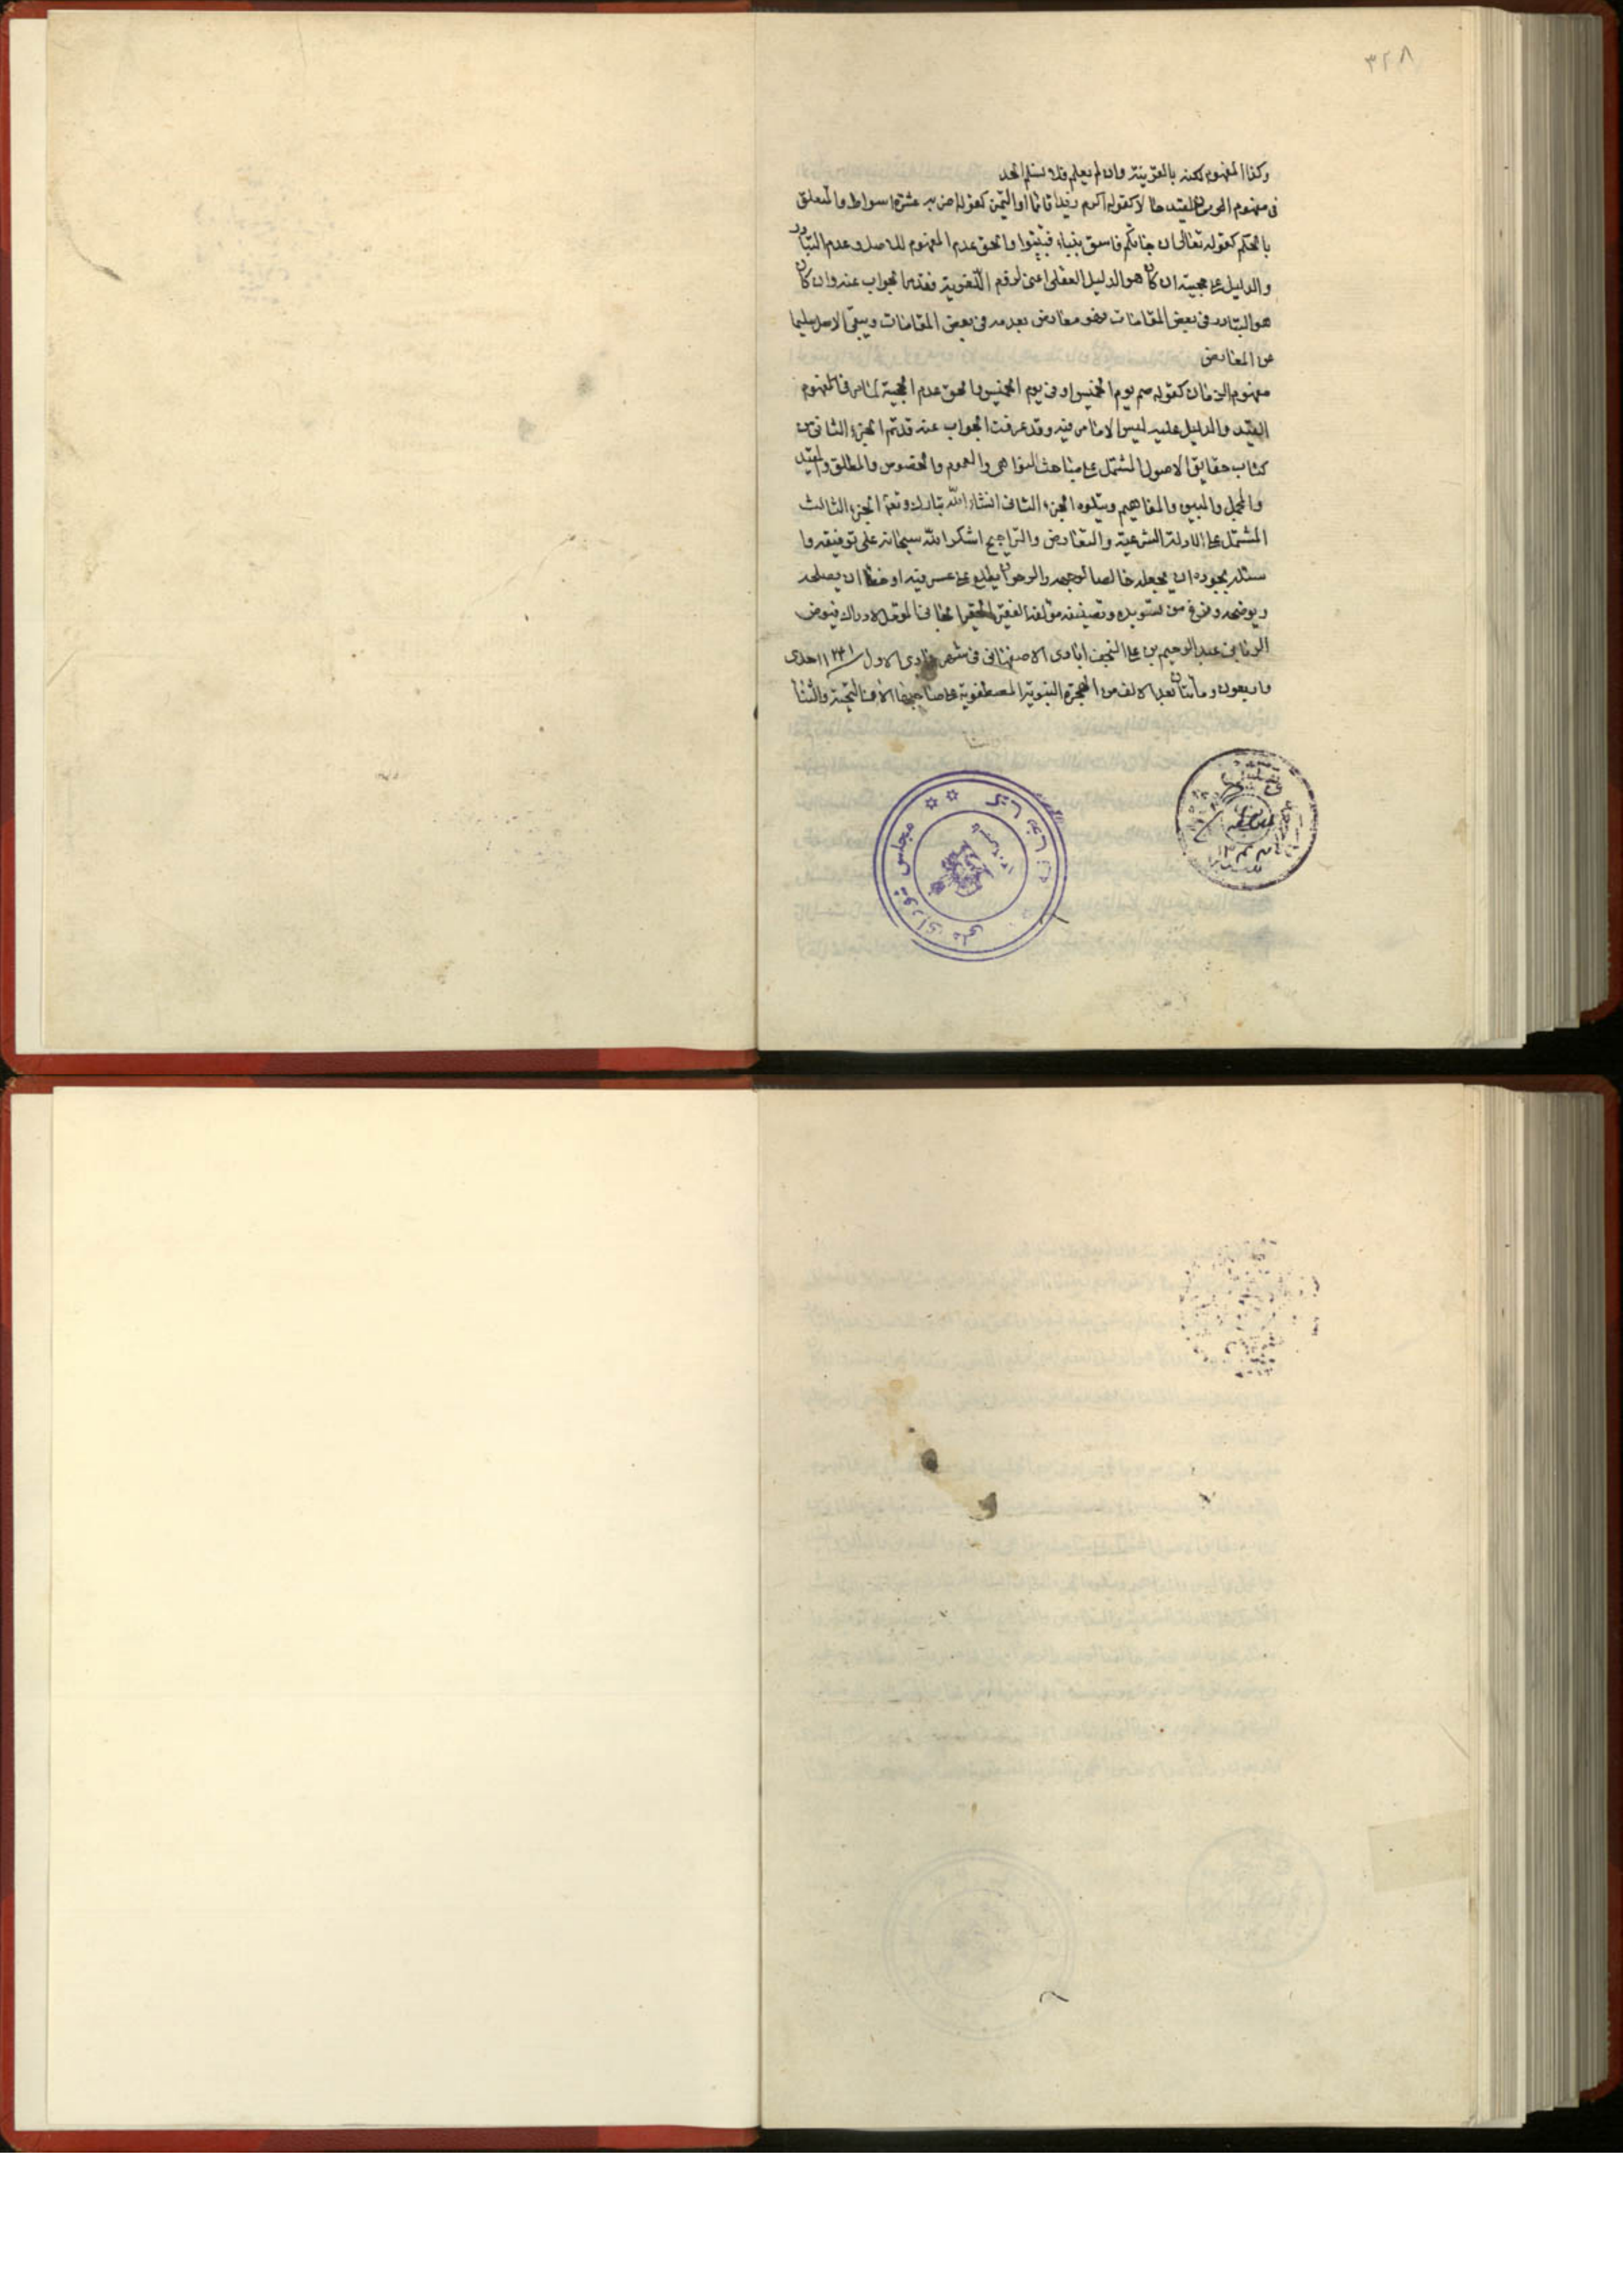 ٣٢٨
وكذا المفهوم لكنه بالقرينة وان لم يعلم فلا نسلم الحد
فى مفهوم الوصف المقيد حالا كقوله اكرم زيدا قائما او التميز كقوله اضربه عشرة اسواط والمتعلق
بالحكم كقوله تعالى ان جائكم فاسق بنباء فتبينوا والحق عدم المفهوم للاصل وعدم التبادر
والدليل على حجيته ان كان هو الدليل العقلى اعنى لزوم اللغوية فقد مر الجواب عنه وان كان
هو التبادر فى بعض المقامات فهو معارض بعدمه فى بعض المقامات ويبقى الاصل سليما
عن المعارض
مفهوم الزمان كقوله صم يوم الخميس او فى يوم الخميس والحق عدم الحجية لما مر فى المفهوم
القيد والدليل عليه ليس الا ما مر فيه وقد عرفت الجواب عنه قد تم الجزء الثانى من
كتاب حقايق الاصول المشتمل على مباحث النواهى والعموم والخصوص والمطلق والمقيد
والمجمل والمبين والمفاهيم ويتلوه الجزء الثانى انشاء الله تبارك وتعالى الجزء الثالث
المشتمل على الادلة الشرعية والتعارض والتراجيح اشكر الله سبحانه على توفيقه وا
سئله بجوده ان يجعله خالصا لوجهه والمرجو ان يطلع على عسر فيه او خطا ان يصلحه
ويوضحه وفرغ من تسويده وتصنيفه مؤلفه الفقير الحقير الجانى لادراك فيوض
الربانى عبد الرحيم بن على النجف ابادى الاصفهانى فى شهر جمادى الاول ١٢٤١ احدى
واربعون ومأتان بعد الالف من الهجرة النبوية المصطفوية على صاحبها الاف التحية والثناء
مجلس شوراى ملى